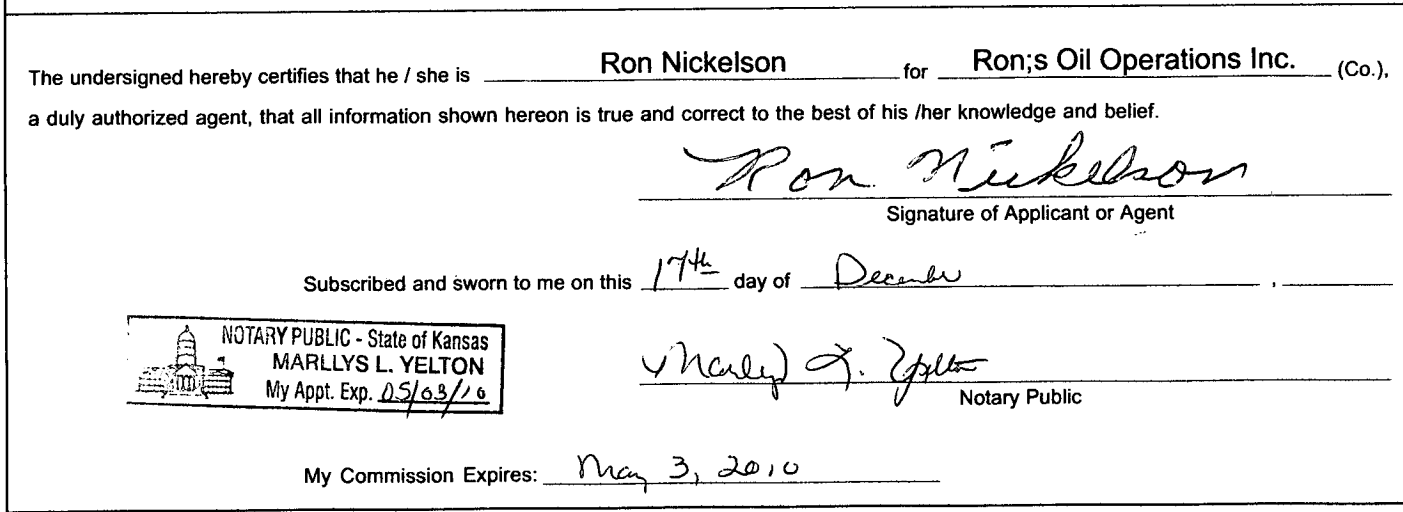 The undersigned hereby certifies that he / she is Ron Nickelson for Ron;s Oil Operations Inc. (Co.),
a duly authorized agent, that all information shown hereon is true and correct to the best of his /her knowledge and belief.
Ron Nickelson
Signature of Applicant or Agent
Subscribed and sworn to me on this 17th day of December ,
NOTARY PUBLIC - State of Kansas
MARLLYS L. YELTON
My Appt. Exp. 05/03/10
Marllys L. Yelton
Notary Public
My Commission Expires: May 3, 2010